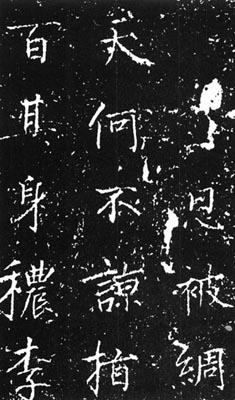 恩被綢
天何不諒指
百其身穠李